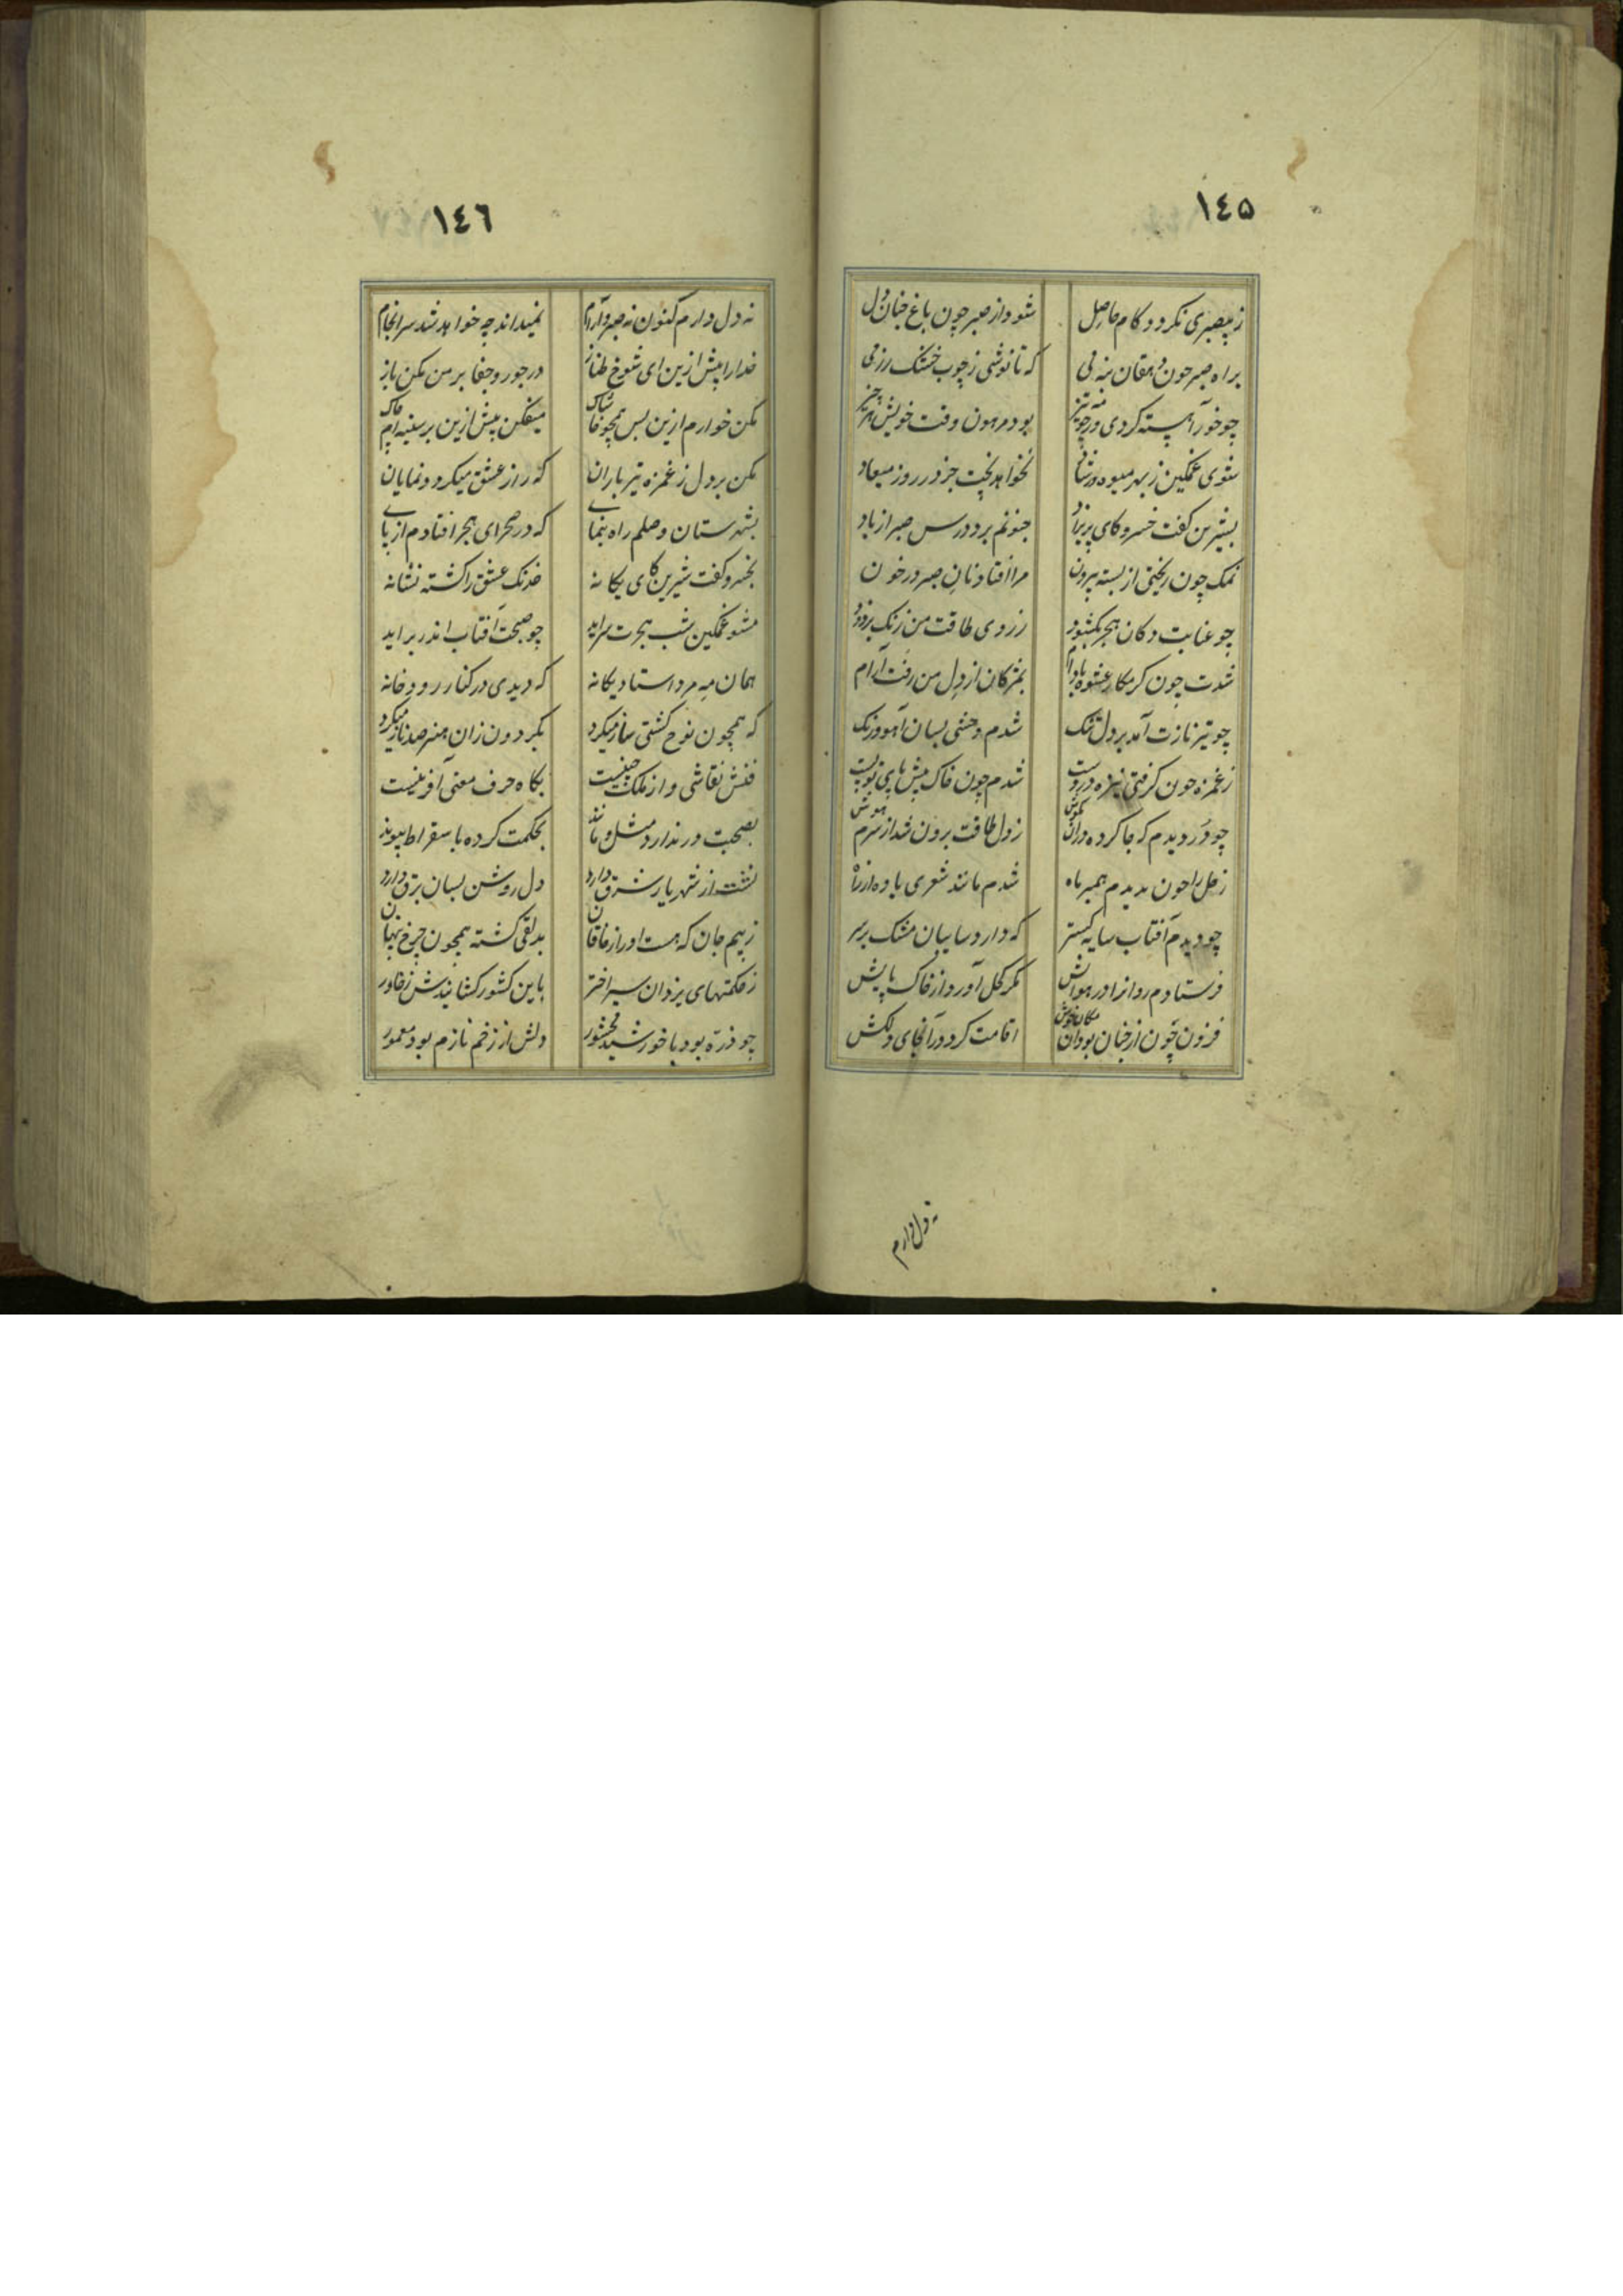 ١٤٥
ز بیصبری نکردد کام حاصل شود از صبر چون باغ جنان دل
براه صبر چون دهقان بنه پی که تا نوشی ز چوب خشک رز می
چو خور آهسته کردی نه چو تیز بود مرهون وقت خویش هر چیز
شوی غمکین ز بهر میوه نخواهد پخت جز در روز میعاد
بشیرین کفت خسرو کای پریزاد جنونم برد درس صبر از یاد
نمک چون ریختی از پسته بیرون مرا افتاد نان صبر در خون
چو عنابت دکان هجر بکشود ز روی طاقت من رنک بزدود
شدت چون کرمکار عشوه بادام بمژکان از دل من رفت آرام
چو تیر نازت آمد بر دل تنک شدم وحشی بسان آهوورنک
ز غمزه چون کرفتی نیزه در دست شدم چون خاک پیش پای تو پست
چو در دیدم که جا کرده در آن کوش ز دل طاقت برون شد از سرم هوش
زحل را چون بدیدم همبر ماه شدم مانند شعری باده از راه
چو دیدم آفتاب سایه کستر که دارد سایبان مشک بر سر
فرستادم روانرا در هوایش مکر کحل آورد از خاک پایش
فزون چون از جنان بود آن مکان خوش اقامت کرد در آنجای دلکش
نه دل دارم
١٤٦
نه دل دارم کنون نه صبر و آرام نمیداند چه خواهد شد سرانجام
خدارا پیش ازین ای شوخ طناز در جور و جفا بر من مکن باز
مکن خوارم ازین پس همچو خاشاک میفکن پیش ازین بر سینه ام چاک
مکن بر دل ز غمزه تیر باران که راز عشق میکردد نمایان
بشهرستان وصلم راه بنمای که در صحرای هجر افتادم از پای
بخسرو کفت شیرین کای یکانه خدنک عشق را کشته نشانه
مشو غمکین شب هجرت سراید چو صبحت آفتاب اندر براید
همان مه مرد استاد یکانه که دیدی در کنار رودخانه
که همچون نوح کشتی ساز میکرد بکردون زان هنر صد ناز میکرد
فنش نقاشی و از ملک چینست بکاه حرف معنی آفرینست
بصحبت ور ندارد مثل و مانند بحکمت کرده با سقراط پیوند
نشت از شهریار شرق دارد دل روشن بسان برق دارد
ز بیم جان که هست او را ز خاقان بدلقی کشته همچون چرخ پنهان
ز حکمتهای یزدان سیر اختر باین کشور کشانیدش ز خاور
چو ذره بود با خورشید محشور دلش از زخم نازم بود معمور